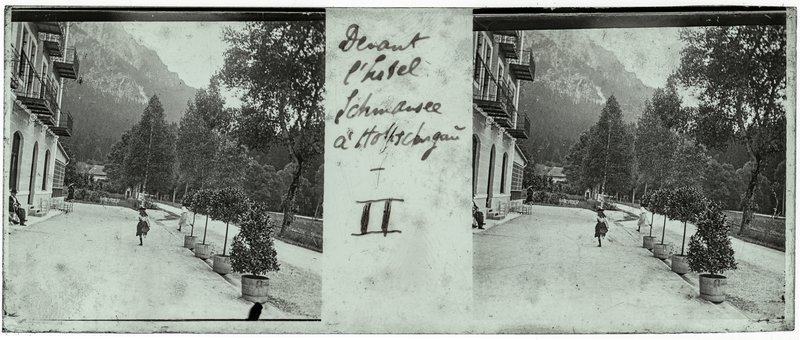 Devant
l'hotel
Schwansee
à Hohschwgau
–
II